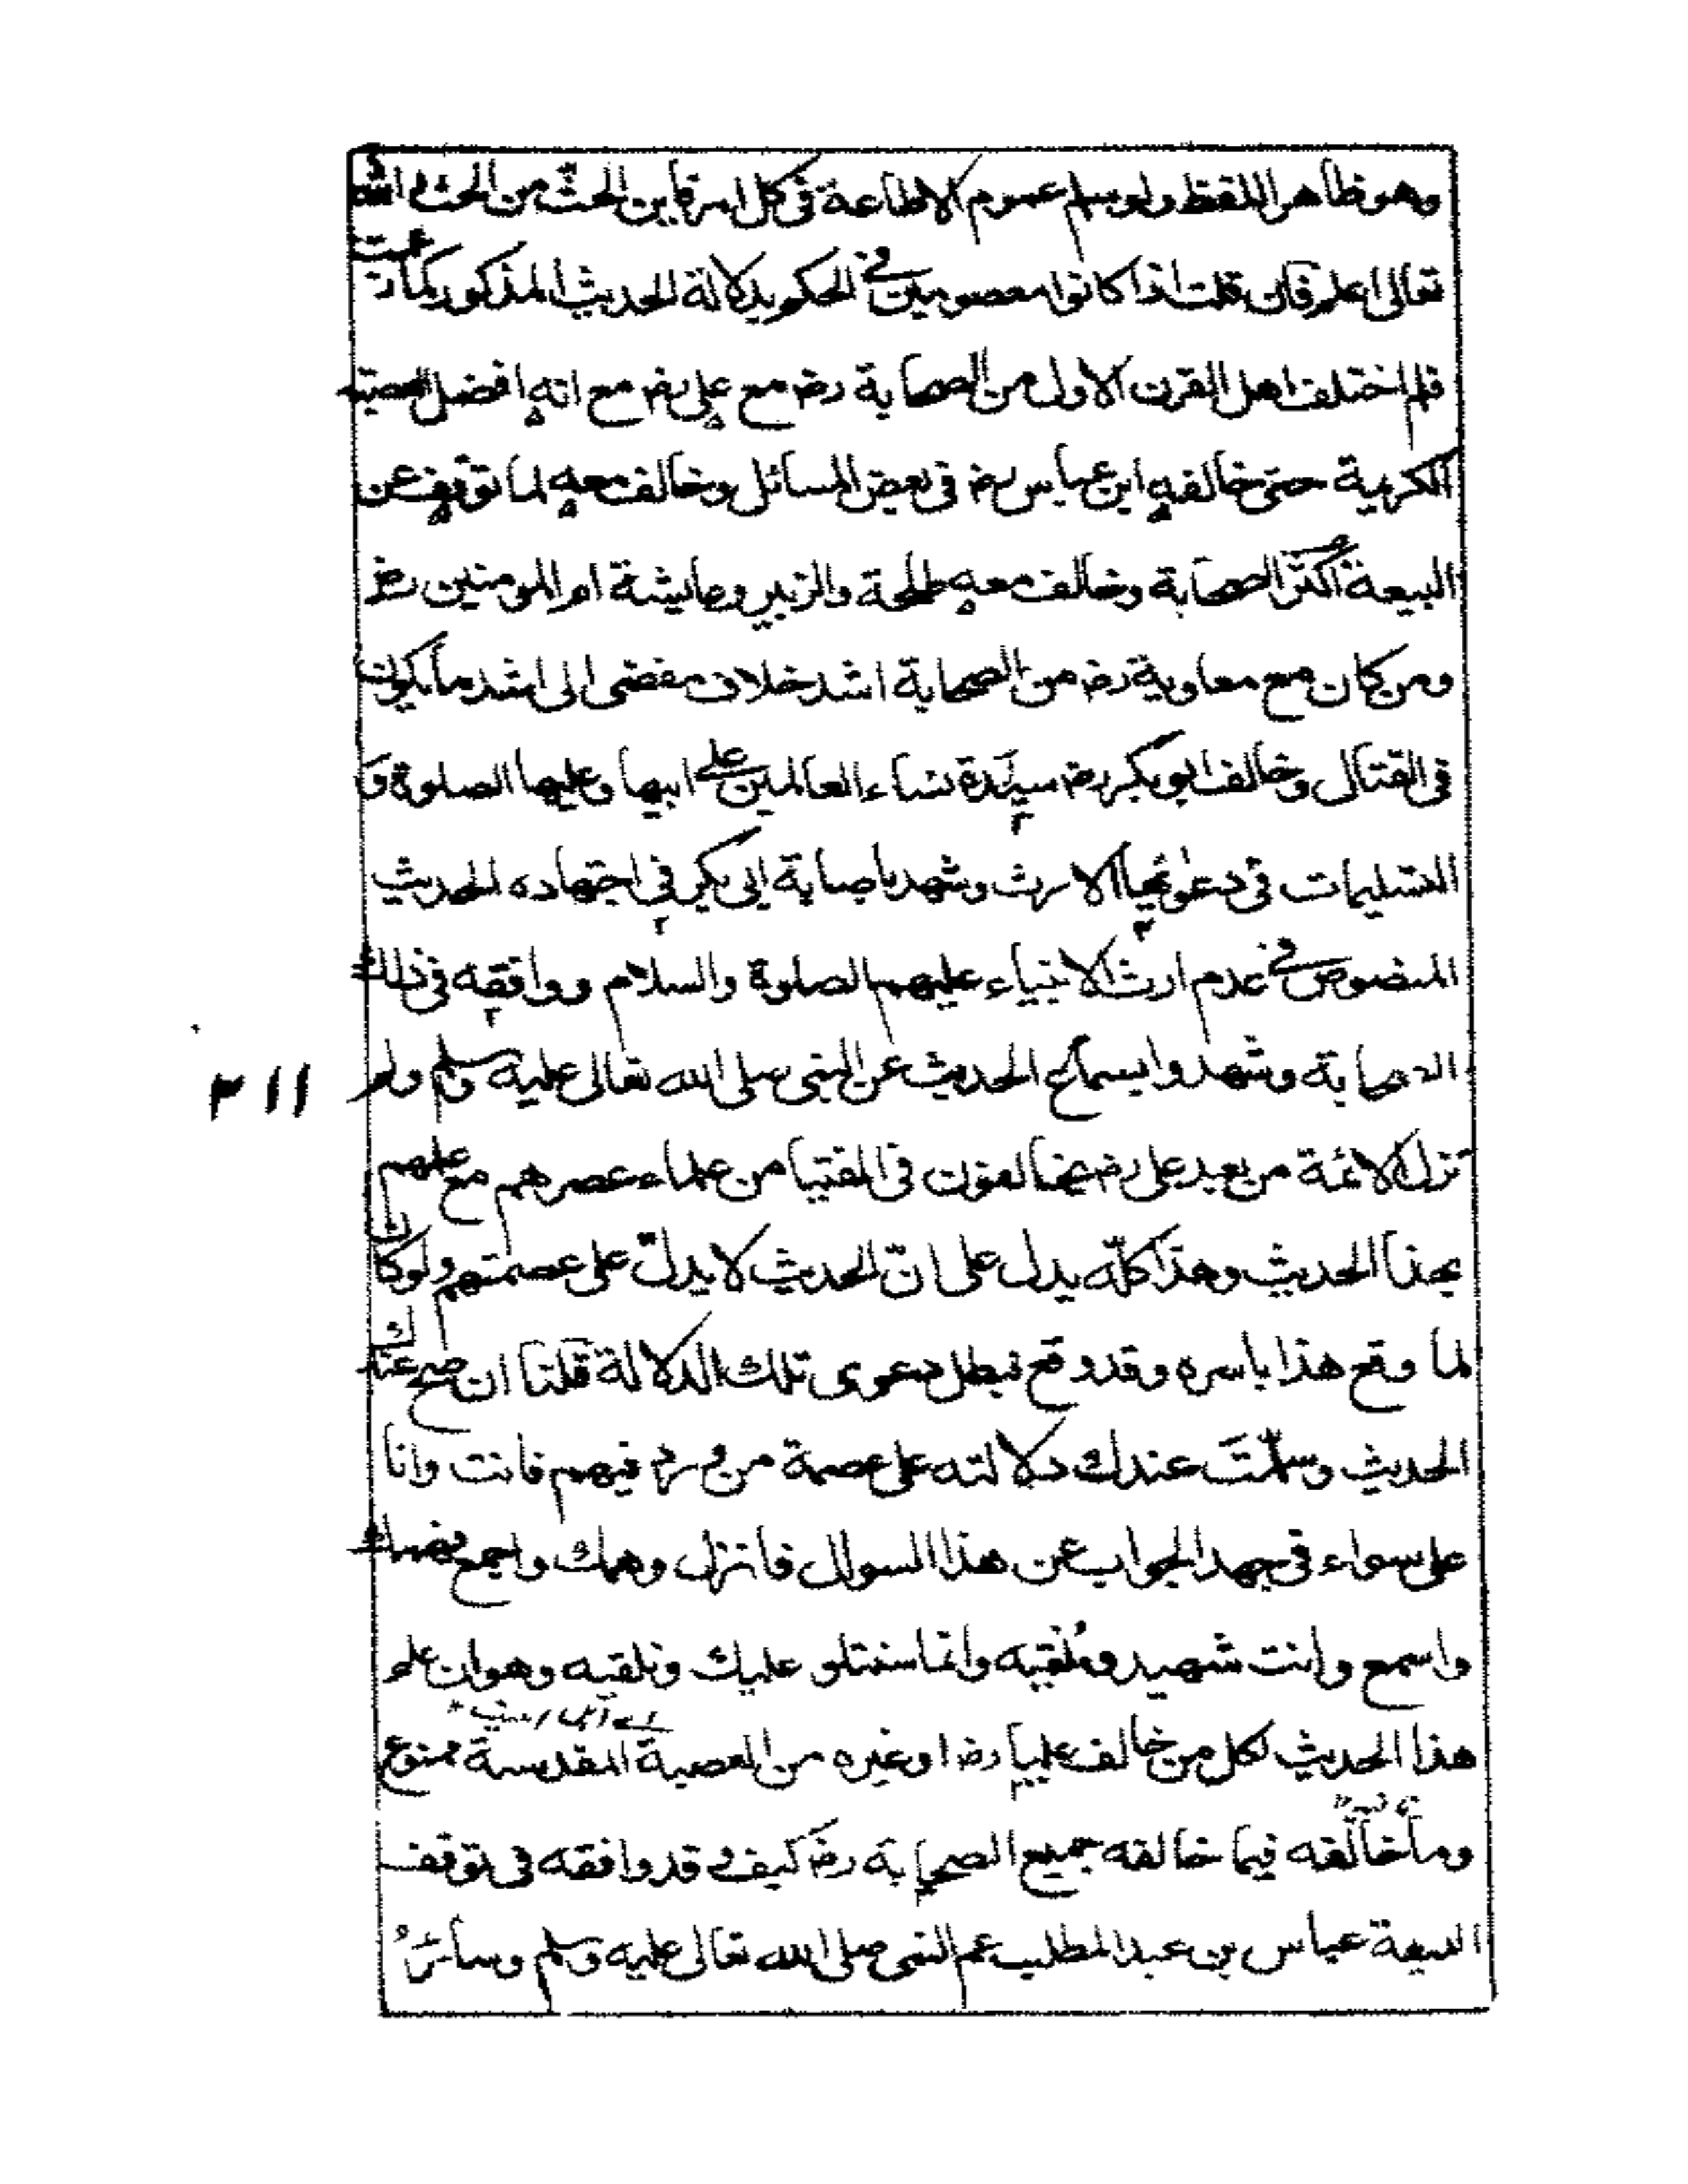 وهو ظاهر اللفظ ولو سلم عموم الاطاعة فى كل امر فاين الحث من الحث والله
تعالى اعلم فان قلت اذا كانوا معصومين فى الحكم بدلالة الحديث المذكور كما زعمت
فلم اختلف اهل القرن الاول من الصحابة رض مع على رض مع انه افضل العصبته
الكريمة حتى خالفه ابن عباس رض فى بعض المسائل وخالف معه لما توقف عن
البيعة اكثر الصحابة وخالف معه طلحة والزبير وعايشة ام المومنين رض
ومن كان مع معاوية رض من الصحابة اشد خلاف مفضى الى اشد ما يكون
فى القتال وخالف ابو بكر رض سيدة نساء العالمين على ابيها وعليها الصلوة و
التسليمات فى دعوٰئها الارث وشهد باصابة ابى بكر فى اجتهاده الحديث
المنصوص فى عدم ارث الانبياء عليهم الصلوة والسلام ووافقه فى ذلك
الصحابة وشهدوا بسماع الحديث عن النبى صلى الله تعالى عليه وسلم ولم
٢١١
تزل الائمة من بعد على رض يخالفون فى الفتيا من علماء عصرهم مع علمهم
بهذا الحديث وهذا كلّه يدل على انّ الحديث لا يدلّ على عصمتهم ولو كان
لما وقع هذا باسره وقد وقع فبطل دعوى تلك الدلالة قلنا ان صح عندك
الحديث وسلّمتَ عندك دلالته على عصمة من ورد فيهم فانت وانا
على سواء فى جهد الجواب عن هذا السوال فانزل وهمك واجمع فهمك
واسمع وانت شهيد ومُلقيه وانا سنتلو عليك ونلقيه وهو ان علم
هذا الحديث لكل من خالف عليا رض او غيره من العصبة المقدسة ممنوع
وما خالفه فيما خالفه جميع الصحابة رض كيف و قد وافقه فى توقف
البيعة عباس بن عبد المطلب عم النبى صلى الله تعالى عليه وسلم وسائرُ